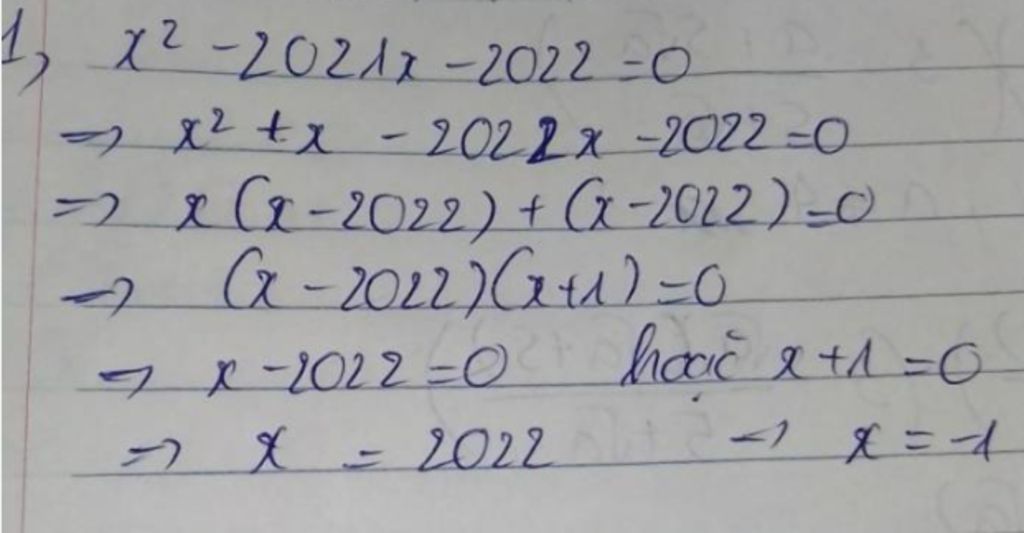 1, x² - 2021x - 2022 = 0
=> x² + x - 2022x - 2022 = 0
=> x(x - 2022) + (x - 2022) = 0
=> (x - 2022)(x + 1) = 0
=> x - 2022 = 0 hoặc x + 1 = 0
=> x = 2022 => x = -1